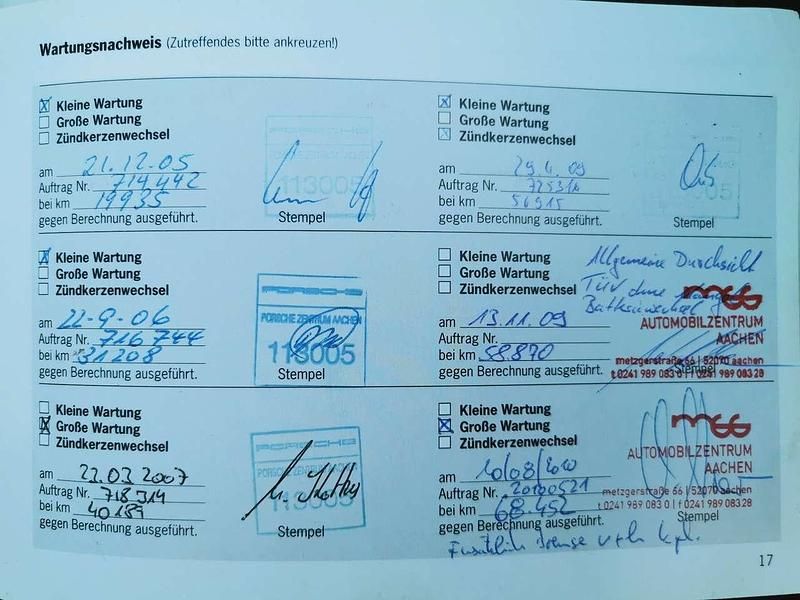 Wartungsnachweis (Zutreffendes bitte ankreuzen!)
Kleine Wartung
Große Wartung
Zündkerzenwechsel
am 21.12.05
Auftrag Nr. 714442
bei km 19935
gegen Berechnung ausgeführt.
113005
Stempel
Kleine Wartung
Große Wartung
Zündkerzenwechsel
am 29.4.09
Auftrag Nr. 725310
bei km 56915
gegen Berechnung ausgeführt.
Stempel
Kleine Wartung
Große Wartung
Zündkerzenwechsel
am 22-9-06
Auftrag Nr. 716744
bei km 31208
gegen Berechnung ausgeführt.
PORSCHE
PORSCHE ZENTRUM AACHEN
113005
Stempel
Kleine Wartung
Große Wartung
Zündkerzenwechsel
am 13.11.09
Auftrag Nr.
bei km 58.870
gegen Berechnung ausgeführt.
Allgemeine Durchsicht
TÜV ohne
Batteriewechsel
AUTOMOBILZENTRUM
AACHEN
metzgerstraße 56 | 52070 aachen
t 0241 989 083 0 | f 0241 989 083 28
Stempel
Kleine Wartung
Große Wartung
Zündkerzenwechsel
am 22.03 2007
Auftrag Nr. 718314
bei km 40189
gegen Berechnung ausgeführt.
PORSCHE
Stempel
Kleine Wartung
Große Wartung
Zündkerzenwechsel
am 10/08/2010
Auftrag Nr. 20100521
bei km 68.452
gegen Berechnung ausgeführt.
AUTOMOBILZENTRUM
AACHEN
metzgerstraße 56 | 52070 aachen
t 0241 989 083 0 | f 0241 989 083 28
Stempel
17